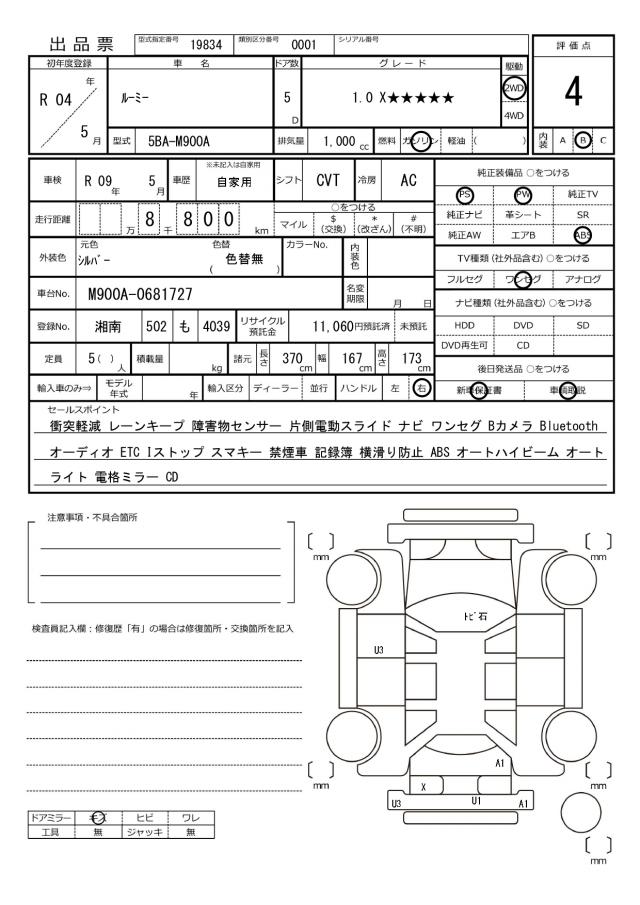 出品票 型式指定番号 19834 類別区分番号 0001 シリアル番号
評価点
4
初年度登録 車名 ドア数 グレード 駆動
R 04 年 5 月 ルーミー 5 D 1.0 X★★★★★ 2WD 4WD
型式 5BA-M900A 排気量 1,000 cc 燃料 ガソリン 軽油 ( ) 内装 A B C
車検 R 09 年 5 月 車歴 ※未記入は自家用 自家用 シフト CVT 冷房 AC
純正装備品 ○をつける
PS PW 純正TV
純正ナビ 革シート SR
純正AW エアB ABS
走行距離 万 8 千 8 0 0 km
○をつける
マイル $ (交換) * (改ざん) # (不明)
外装色 元色 シルバー 色替 ( 色替無 ) カラーNo. 内装色
TV種類 (社外品含む) ○をつける
フルセグ ワンセグ アナログ
車台No. M900A-0681727 名変期限 月 日
ナビ種類 (社外品含む) ○をつける
HDD DVD SD
DVD再生可 CD
登録No. 湘南 502 も 4039 リサイクル預託金 11,060円預託済 未預託
定員 5 ( ) 人 積載量 kg 諸元 長さ 370 cm 幅 167 cm 高さ 173 cm
後日発送品 ○をつける
新車保証書 車輌取説
輸入車のみ⇒ モデル年式 年 輸入区分 ディーラー 並行 ハンドル 左 右
セールスポイント
衝突軽減 レーンキープ 障害物センサー 片側電動スライド ナビ ワンセグ Bカメラ Bluetooth
オーディオ ETC Iストップ スマキー 禁煙車 記録簿 横滑り防止 ABS オートハイビーム オート
ライト 電格ミラー CD
注意事項・不具合箇所
検査員記入欄：修復歴「有」の場合は修復箇所・交換箇所を記入
ドアミラー キズ ヒビ ワレ
工具 無 ジャッキ 無
mm
mm
トビ石
U3
mm
mm
A1
X
U3 U1 A1
mm